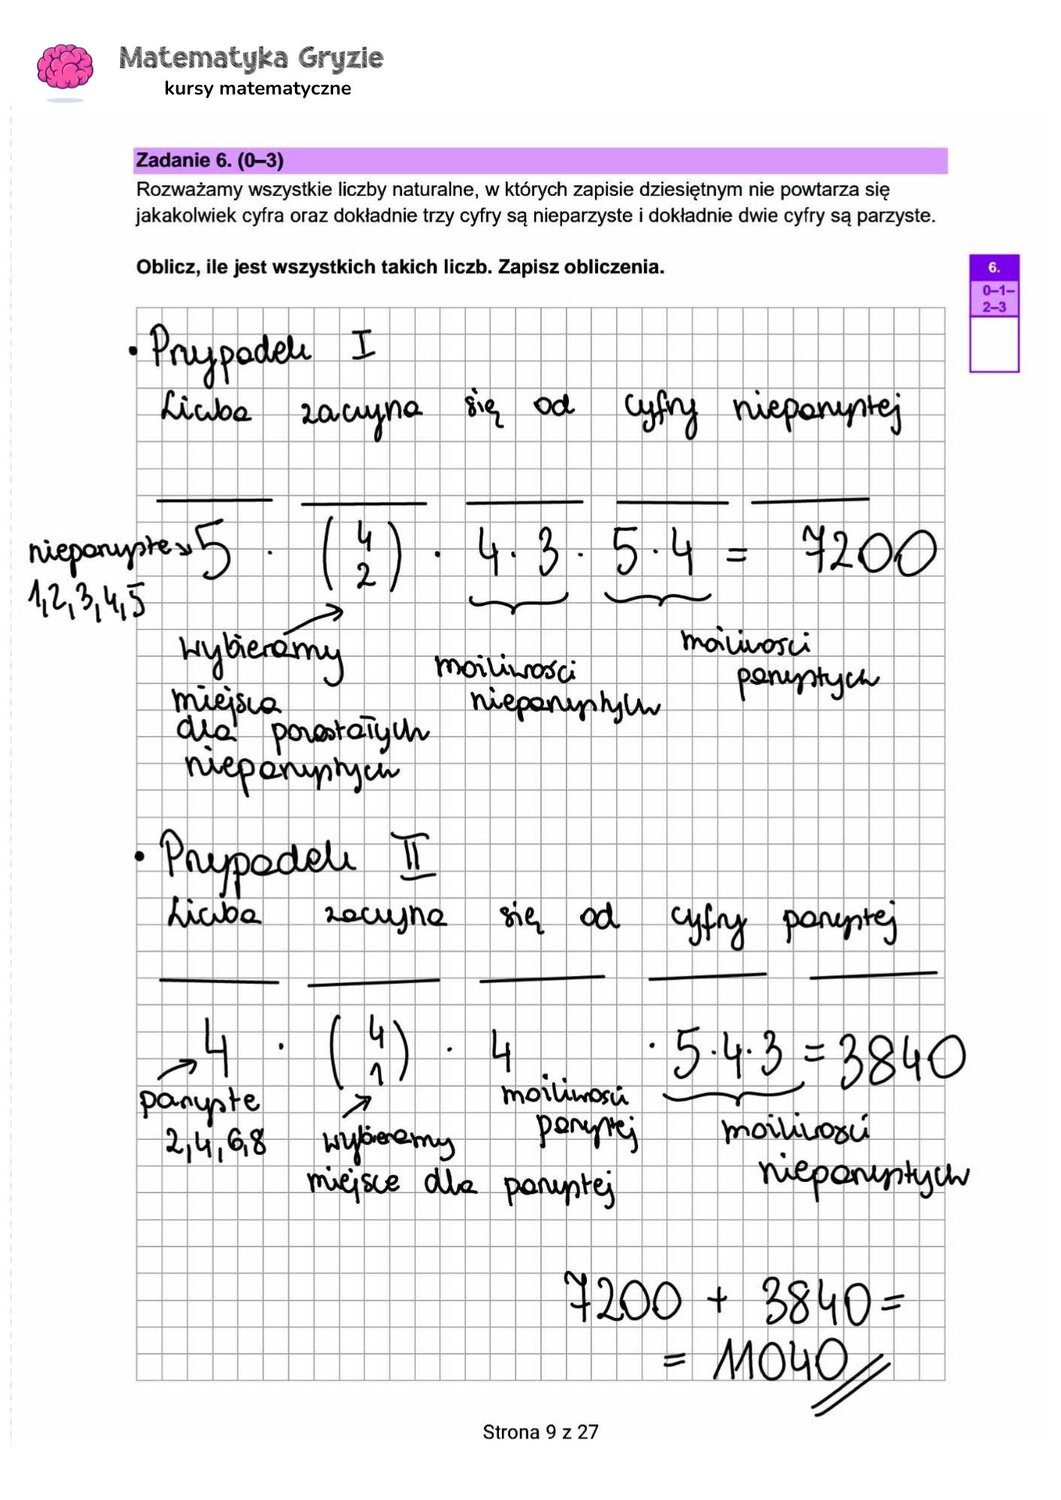 Matematyka Gryzie
kursy matematyczne
Zadanie 6. (0–3)
Rozważamy wszystkie liczby naturalne, w których zapisie dziesiętnym nie powtarza się
jakakolwiek cyfra oraz dokładnie trzy cyfry są nieparzyste i dokładnie dwie cyfry są parzyste.
Oblicz, ile jest wszystkich takich liczb. Zapisz obliczenia.
6.
0–1–
2–3
• Przypadek I
Liczba zaczyna się od cyfry nieparzystej
nieparzyste → 5 · (4 2) · 4 · 3 · 5 · 4 = 7200
1,2,3,4,5
wybieramy
miejsca
dla pozostałych
nieparzystych
możliwości
nieparzystych
możliwości
parzystych
• Przypadek II
Liczba zaczyna się od cyfry parzystej
4 · (4 1) · 4 · 5·4·3 = 3840
parzyste
2,4,6,8
wybieramy
miejsce dla parzystej
możliwości
parzystej
możliwości
nieparzystych
7200 + 3840 =
= 11040
Strona 9 z 27